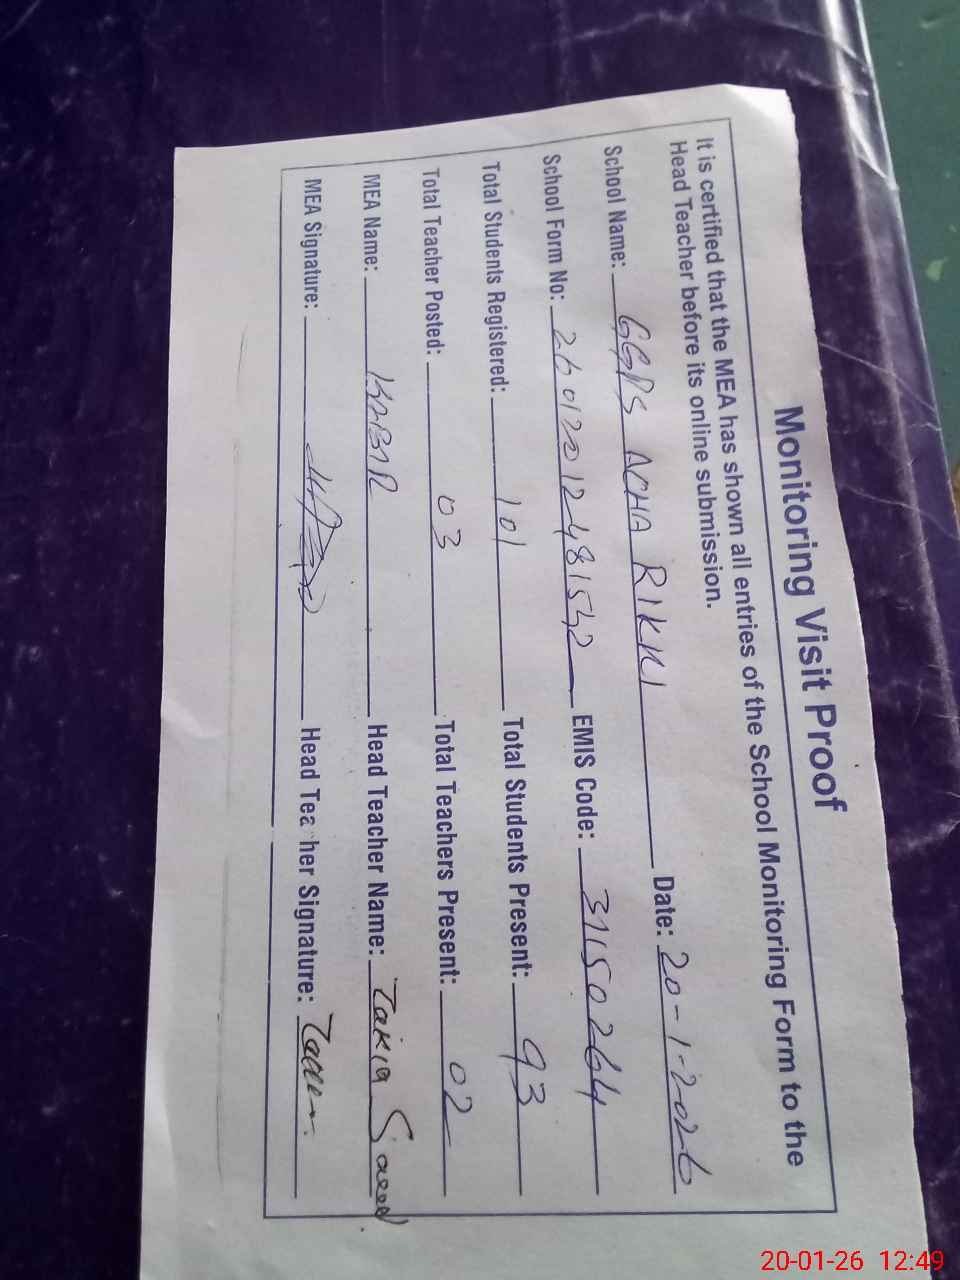 Monitoring Visit Proof
It is certified that the MEA has shown all entries of the School Monitoring Form to the
Head Teacher before its online submission.
School Name: GGPS ACHA RIKKI Date: 20-1-2026
School Form No: 260120124815 EMIS Code: 31150264
Total Students Registered: 101 Total Students Present: 93
Total Teacher Posted: 03 Total Teachers Present: 02
MEA Name: KABIR Head Teacher Name: Zakia Saeed
MEA Signature: Head Teacher Signature:
20-01-26 12:49